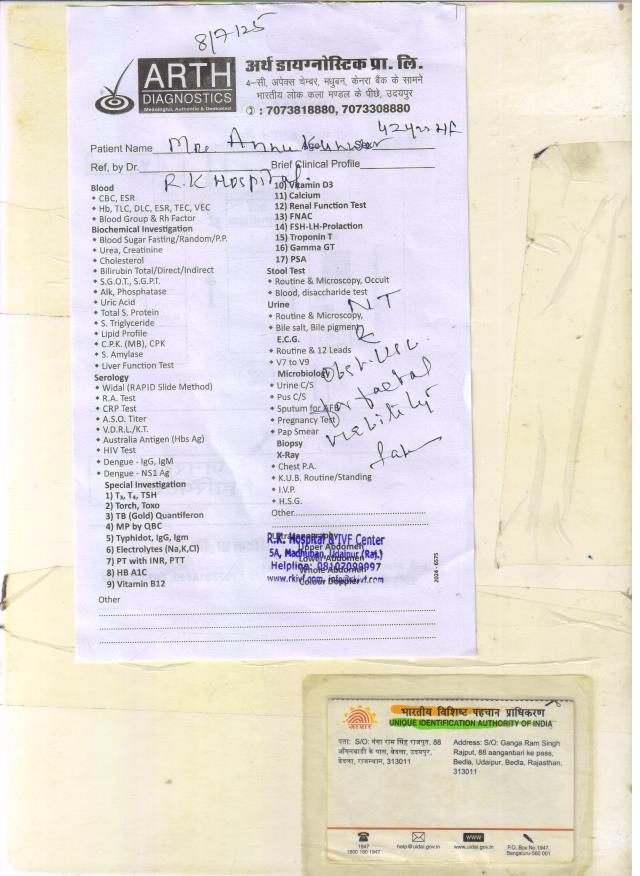 8/7/25
ARTH
DIAGNOSTICS
Meaningful, Authentic & Dedicated
अर्थ डायग्नोस्टिक प्रा. लि.
4-सी, अपेक्स चेम्बर, मधुबन, केनरा बैंक के सामने
भारतीय लोक कला मण्डल के पीछे, उदयपुर
: 7073818880, 7073308880
Patient Name
42yrs
Ref, by Dr. Brief Clinical Profile
R.K Hospital.
Blood
CBC, ESR
Hb, TLC, DLC, ESR, TEC, VEC
Blood Group & Rh Factor
Biochemical Investigation
Blood Sugar Fasting/Random/P.P.
Urea, Creatinine
Cholesterol
Bilirubin Total/Direct/Indirect
S.G.O.T., S.G.P.T.
Alk, Phosphatase
Uric Acid
Total S. Protein
S. Triglyceride
Lipid Profile
C.P.K. (MB), CPK
S. Amylase
Liver Function Test
Serology
Widal (RAPID Slide Method)
R.A. Test
CRP Test
A.S.O. Titer
V.D.R.L./K.T.
Australia Antigen (Hbs Ag)
HIV Test
Dengue - IgG, IgM
Dengue - NS1 Ag
Special Investigation
1) T₃, T₄, TSH
2) Torch, Toxo
3) TB (Gold) Quantiferon
4) MP by QBC
5) Typhidot, IgG, Igm
6) Electrolytes (Na,K,Cl)
7) PT with INR, PTT
8) HB A1C
9) Vitamin B12
Other
10) Vitamin D3
11) Calcium
12) Renal Function Test
13) FNAC
14) FSH-LH-Prolaction
15) Troponin T
16) Gamma GT
17) PSA
Stool Test
Routine & Microscopy, Occult
Blood, disaccharide test
Urine
Routine & Microscopy,
Bile salt, Bile pigment
E.C.G.
Routine & 12 Leads
V7 to V9
Microbiology
Urine C/S
Pus C/S
Sputum for AFB
Pregnancy Test
Pap Smear
Biopsy
X-Ray
Chest P.A.
K.U.B. Routine/Standing
I.V.P.
H.S.G.
Other
NT
for
Upper Abdomen
Lower Abdomen
Whole Abdomen
Colour Doppler
R.K. Hospital & IVF Center
5A, Madhuban, Udaipur (Raj.)
Helpline: 08107099997
www.rkivf.com, info@rkivf.com
2024 - 6575
भारतीय विशिष्ट पहचान प्राधिकरण
UNIQUE IDENTIFICATION AUTHORITY OF INDIA
आधार
पता: S/O: गंगा राम सिंह राजपूत, 88
आँगनबाडी के पास, बेदला, उदयपुर,
बेदला, राजस्थान, 313011
Address: S/O: Ganga Ram Singh
Rajput, 88 aanganbari ke pass,
Bedla, Udaipur, Bedla, Rajasthan,
313011
1947
1800 180 1947
help@uidai.gov.in
www
www.uidai.gov.in
P.O. Box No.1947,
Bengaluru-560 001